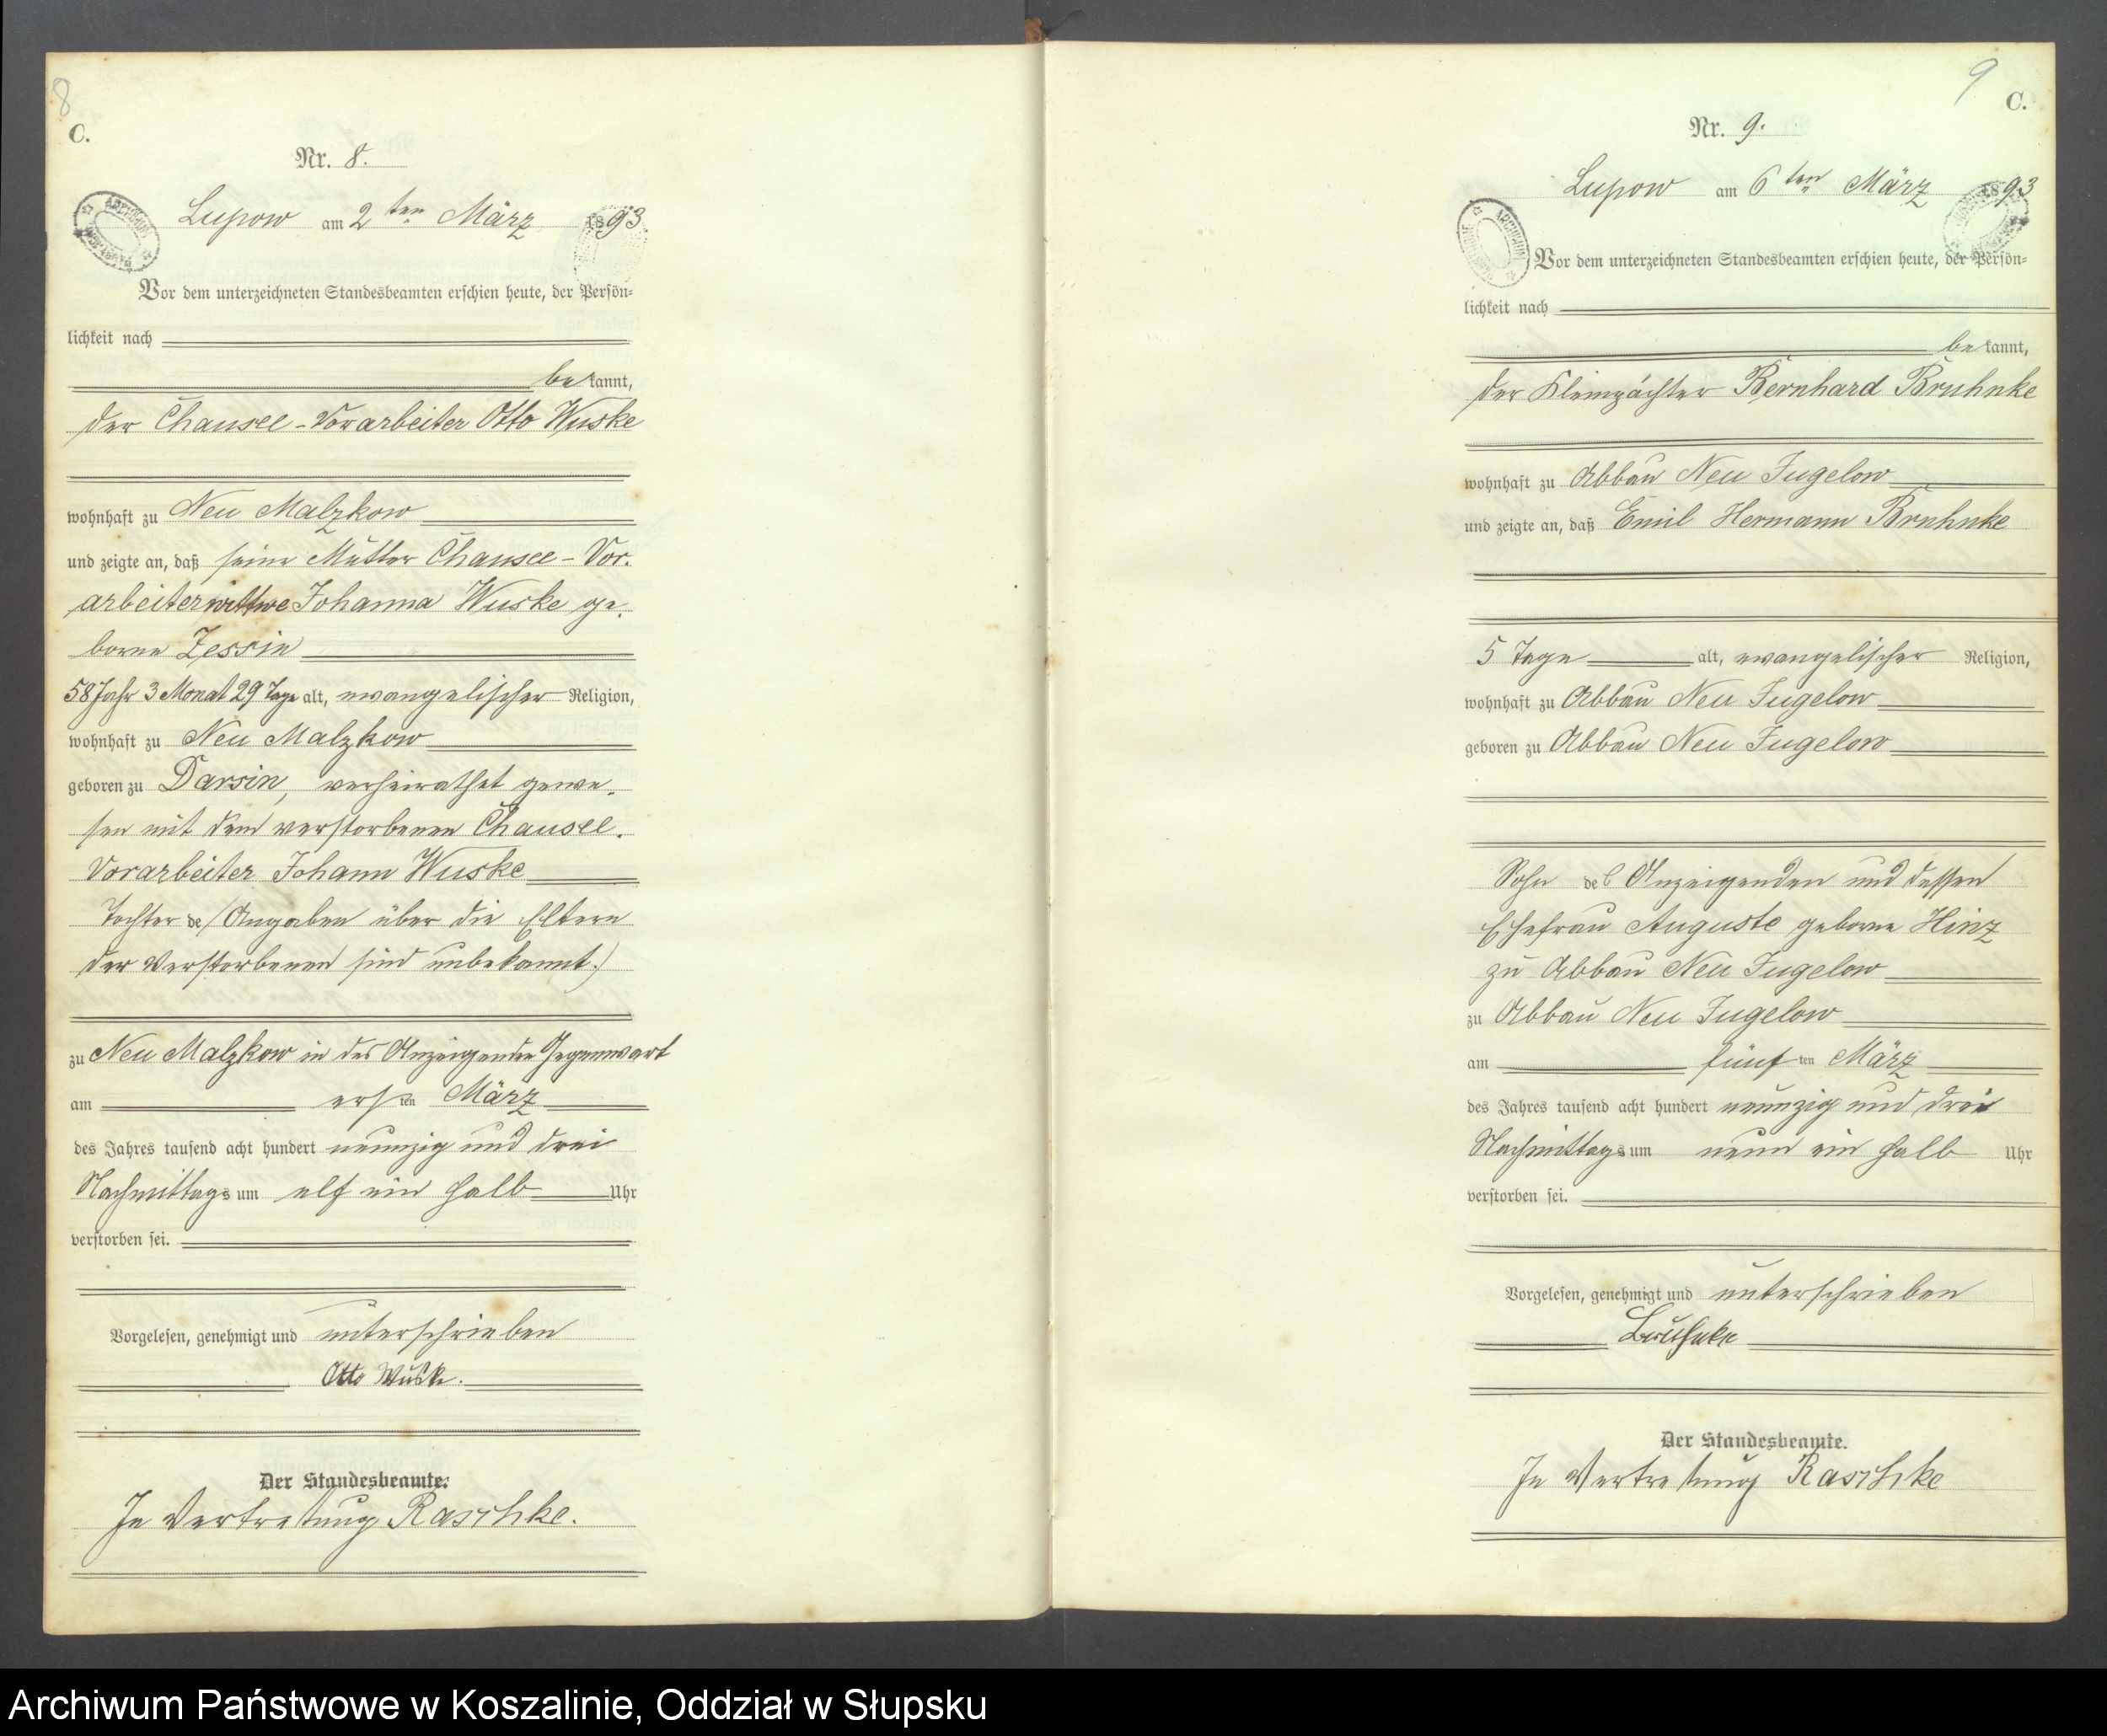 8
C.
Nr. 8.
Lupow am 2ten März 1893
Vor dem unterzeichneten Standesbeamten erschien heute, der Persön=
lichkeit nach
bekannt,
der Chausee-Vorarbeiter Otto Wuske
wohnhaft zu Neu Malzkow
und zeigte an, daß seine Mutter Chausee-Vor-
arbeiterwittwe Johanna Wuske ge-
borne Zessin
58 Jahr 3 Monat 29 Tage alt, evangelischer Religion,
wohnhaft zu Neu Malzkow
geboren zu Darsin, verheirathet gewe-
sen mit dem verstorbenen Chausee-
Vorarbeiter Johann Wuske
Tochter de (Angaben über die Eltern
der Verstorbenen sind unbekannt.)
zu Neu Malzkow in des Anzeigenden Gegenwart
am ersten März
des Jahres tausend acht hundert neunzig und drei
Nachmittags um elf ein halb Uhr
verstorben sei.
Vorgelesen, genehmigt und unterschrieben
Otto Wuske.
Der Standesbeamte:
In Vertretung Raschke.
9
C.
Nr. 9.
Lupow am 6ten März 1893
Vor dem unterzeichneten Standesbeamten erschien heute, der Persön=
lichkeit nach
bekannt,
der Kleinpächter Bernhard Bruhnke
wohnhaft zu Abbau Neu Jugelow
und zeigte an, daß Emil Hermann Bruhnke
5 Tage alt, evangelischer Religion,
wohnhaft zu Abbau Neu Jugelow
geboren zu Abbau Neu Jugelow
Sohn des Anzeigenden und dessen
Ehefrau Auguste geborne Hinz
zu Abbau Neu Jugelow
zu Abbau Neu Jugelow
am fünften März
des Jahres tausend acht hundert neunzig und drei
Nachmittags um neun ein halb Uhr
verstorben sei.
Vorgelesen, genehmigt und unterschrieben
Bruhnke
Der Standesbeamte.
In Vertretung Raschke
Archiwum Państwowe w Koszalinie, Oddział w Słupsku